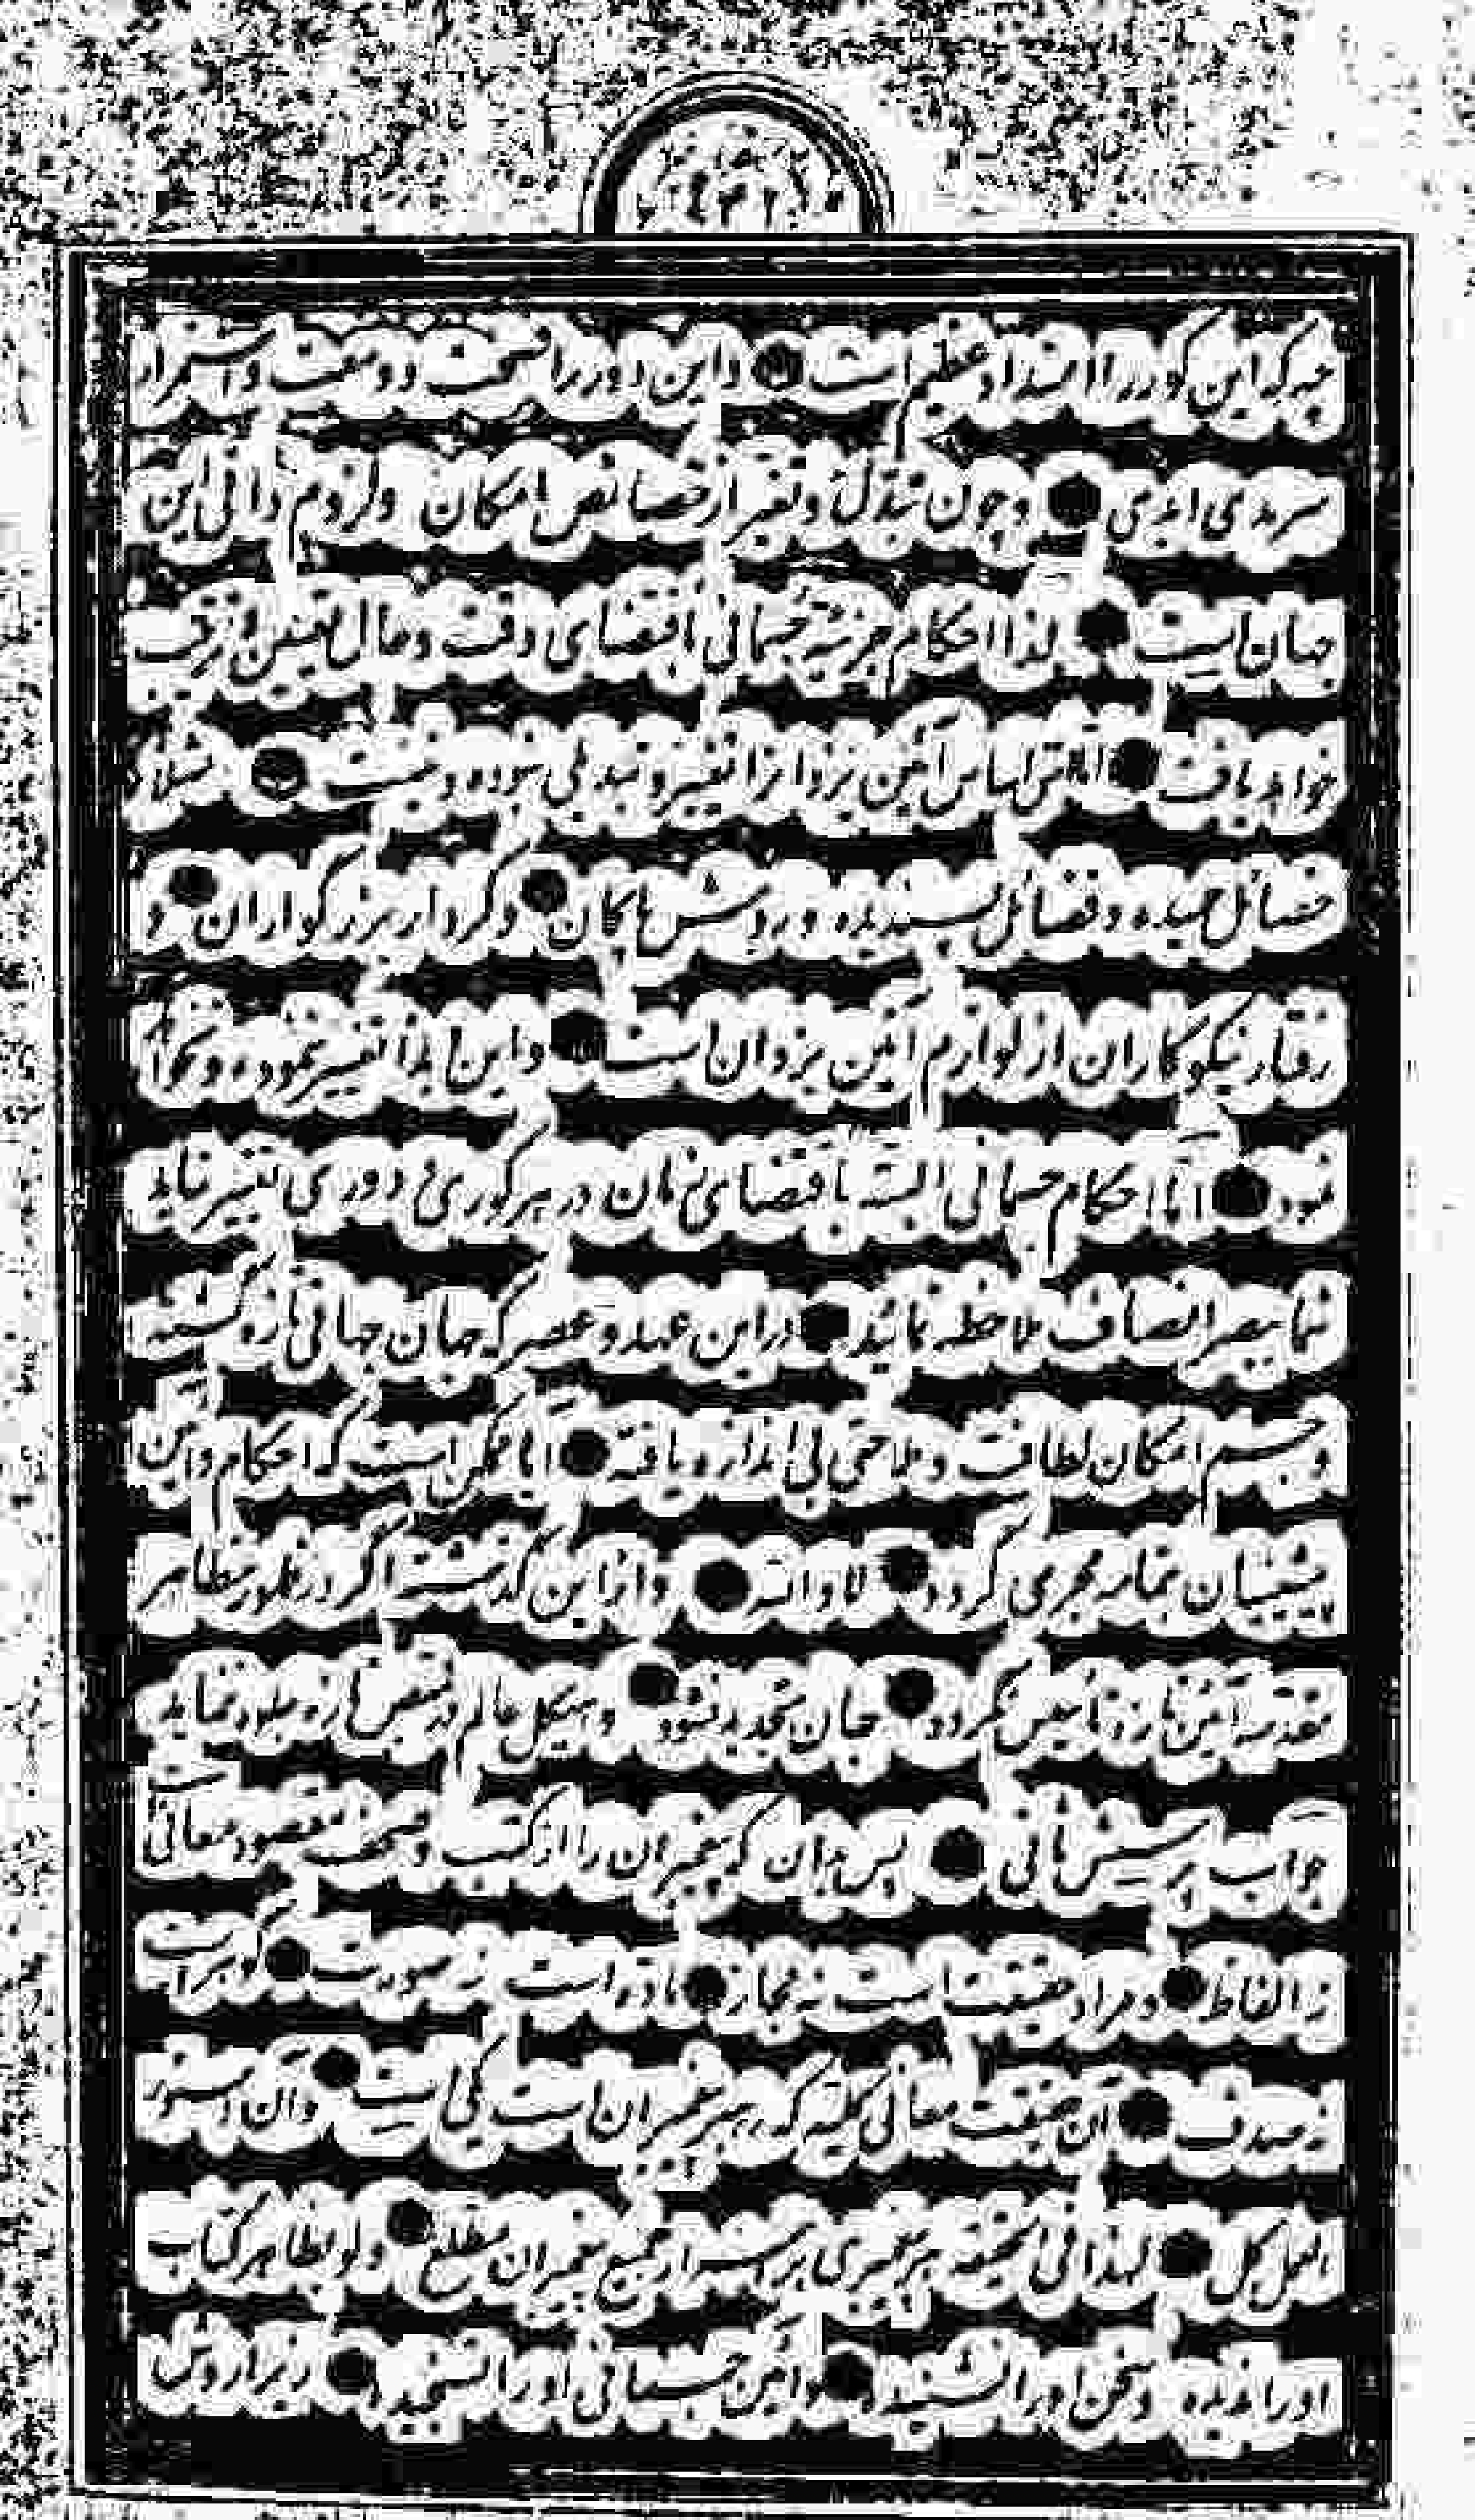 چه که این کور را امتداد عظیم است و این دور را فسحت و وسعت و استمرار
سرمدی ابدی و چون تبدّل و تغیّر از خصائص امکان و لزوم ذاتی این
جهان است لذا احکام جزئیّه جسمانی باقتضای وقت و حال تعیین و ترتیب
خواهد یافت امّا اسّ اساس آئین یزدان را تغییر و تبدیلی نبوده و نیست مثلا
خصائل حمیده و فضائل پسندیده و روش پاکان و کردار بزرگواران و
رفتار نیکوکاران از لوازم آئین یزدان است و این ابدا تغییر ننموده و نخواهد
نمود امّا احکام جسمانی البتّه باقتضای زمان در هر کوری و دوری تغییر نماید
شما ببصر انصاف ملاحظه نمائید در این عهد و عصر که جهان جهانی تازه گشته
و جسم امکان لطافت و ملاحتی بی اندازه یافته آیا ممکن است که احکام و آئین
پیشینیان بتمامه مجری گردد لا والله و از این گذشته اگر در ظهور مظاهر
مقدّسه آئین تازه تأسیس نگردد جهان تجدید نشود و هیکل عالم در قمیص تازه جلوه ننماید
جواب پرسش ثانی پس بدان که پیغمبران را از کتب و صحف مقصود معانی است
نه الفاظ و مراد حقیقت است نه مجاز ماده است نه صورت گوهر است
نه صدف آن حقیقت معانی کلّیّه که رهبر پیغمبران است یکی است و آن دستور
العمل کل لهذا فی الحقیقه هر پیغمبری بر اسرار جمیع پیغمبران مطلع ولو بظاهر کتاب
او را ندیده و سخن او را نشنیده و آئین جسمانی او را نسنجیده زیرا روش